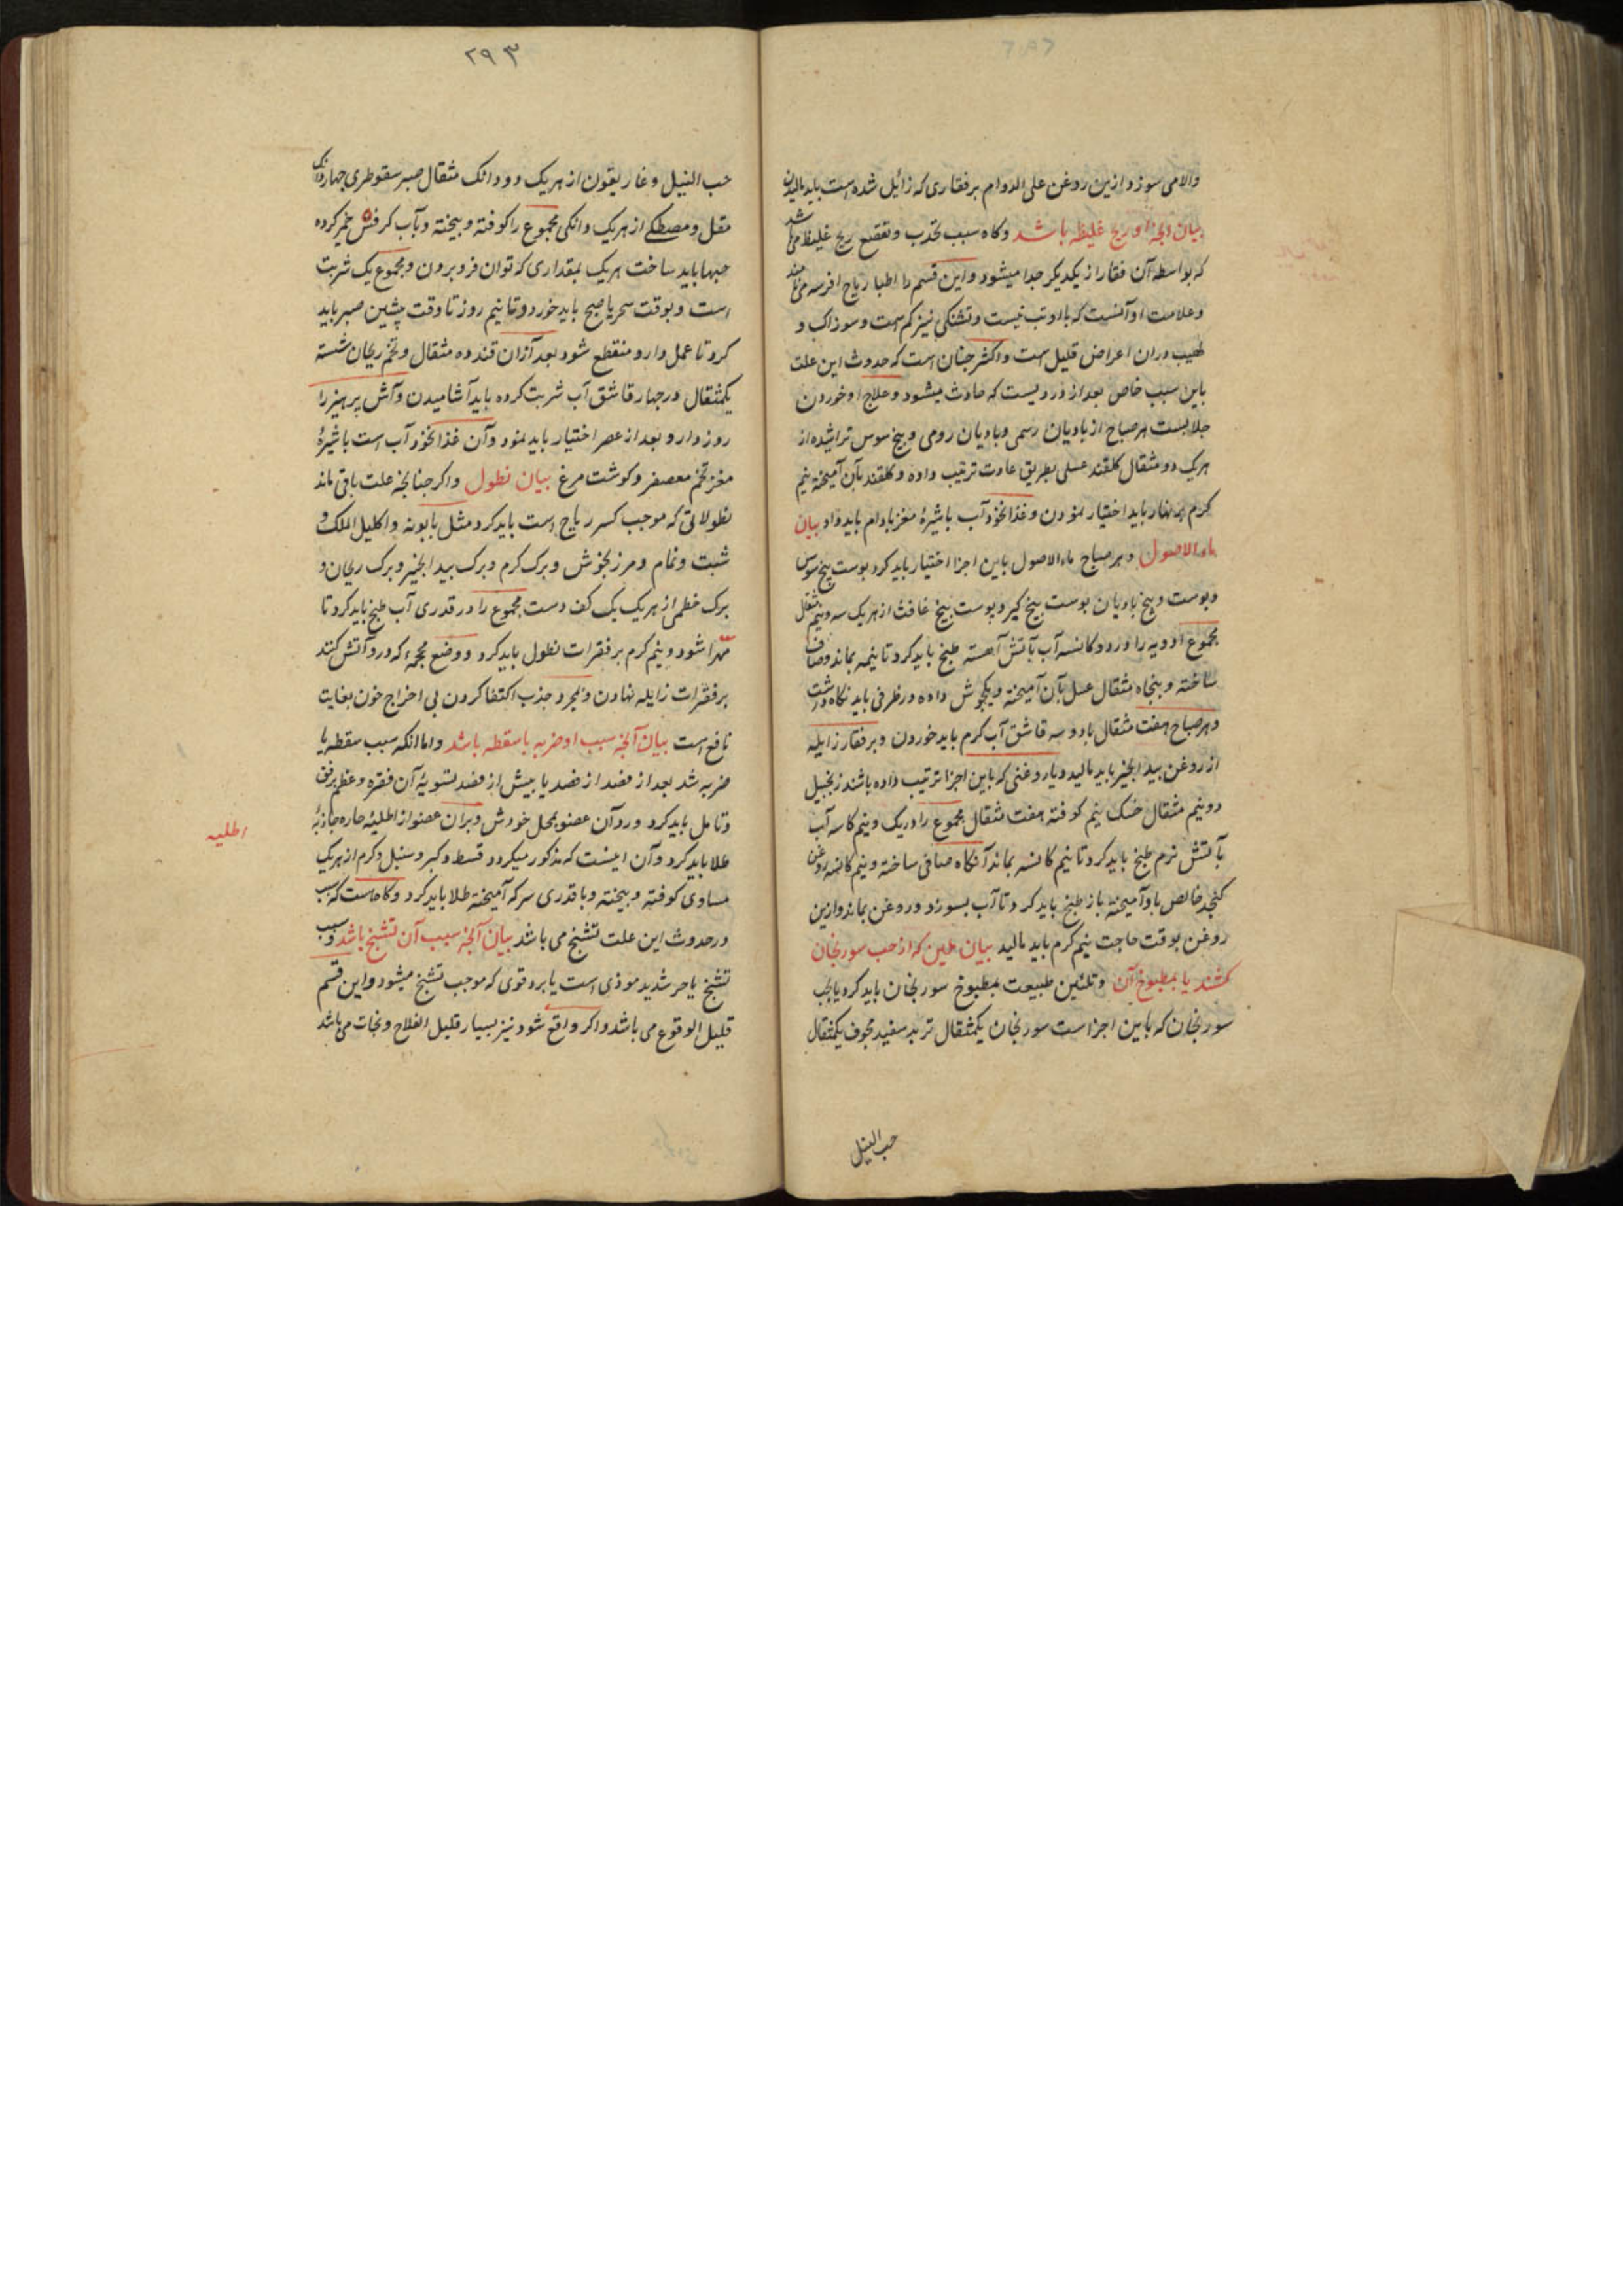 والامی سوزد و ازین روغن علی الدوام بر فقاری که زائل شده است باید مالیدن
بیان آنچه او ریح غلیظه باشد و کاه سبب تحدب و تقصع ریح غلیظ می باشد
که بواسطه آن فقار از یکدیکر جدا میشود و این قسم را اطبا ریاح افرسه می نامند
و علامت او آنست که با او تب نیست و تشنکی نیز کم است و سوزاک و
لهیب دران اعراض قلیل است و اکثر جنان است که حدوث این علت
باین سبب خاص بعد از دردیست که حادث میشود و علاج او خوردن
جلابیست هر صباح از بادیان رسمی و بادیان رومی و بیخ سوس تراشیده از
هریک دو مثقال کلقند عسلی بطریق عادت ترتیب داده و کلقند بآن آمیخته نیم
کرم بر نهار باید اختیار نمودن و غذا نخود آب با شیرهٔ مغز بادام باید داد بیان
ماء الاصول و هر صباح ماء الاصول باین اجزا اختیار باید کرد پوست بیخ سوس
و پوست و بیخ بادیان پوست بیخ کبر و پوست بیخ غافث از هریک سه و نیم مثقال
مجموع ادویه را در دو کاسه آب بآتش آهسته طبخ باید کرد تا نیمه بماند و صاف
ساخته و پنجاه مثقال عسل بآن آمیخته و یکجوش داده در ظرفی باید نکاه داشت
و هر صباح هفت مثقال با دو سه قاشق آب کرم باید خوردن و بر فقار زایله
از روغن بید انجیر باید مالید و یا روغنی که باین اجزا ترتیب داده باشند زنجبیل
دو نیم مثقال خسک نیم کوفته هفت مثقال مجموع را در یک و نیم کاسه آب
بآتش نرم طبخ باید کرد تا نیم کاسه بماند آنکاه صافی ساخته و نیم کاسه روغن
کنجد خالص باو آمیخته باز طبخ باید کرد تا آب بسوزد و روغن بماند و ازین
روغن بوقت حاجت نیم کرم باید مالید بیان ملین که از حب سورنجان
کشند یا بمطبوخ آن و تلئین طبیعت بمطبوخ سورنجان باید کرد یا بحب
سورنجان که باین اجزا است سورنجان یکمثقال تربد سفید مجوف یکمثقال
حب النیل
۲۹۳
حب النیل و غاریقون از هریک دو دانک مثقال صبر سقوطری چهار دانک
مقل و مصطکی از هریک دانکی مجموع را کوفته و بیخته و بآب کرفس خمیر کرده
حبها باید ساخت هریک بمقداری که توان فرو بردن و مجموع یک شربت
است و بوقت سحر یا صبح باید خورد و تا نیم روز تا وقت چشین صبر باید
کرد تا عمل دارو منقطع شود بعد از آن قند ده مثقال و تخم ریحان شسته
یکمثقال در چهار قاشق آب شربت کرده باید آشامیدن و آش پرهیز را
روز دارو بعد از عصر اختیار باید نمود و آن غذا نخود آب است با شیرهٔ
مغز تخم معصفر و کوشت مرغ بیان نطول و اکر چنانچه علت باقی ماند
نطولاتی که موجب کسر ریاح است باید کرد مثل بابونه و اکلیل الملک و
شبت و نمام و مرزنجوش و برک کرم و برک بید انجیر و برک ریحان و
برک خطمی از هریک یک کف دست مجموع را در قدری آب طبخ باید کرد تا
مهرا شود و نیم کرم بر فقرات نطول باید کرد و وضع محجمه که در و آتش کنند
بر فقرات زایله نهادن و بمجرد جذب اکتفا کردن بی اخراج خون بغایت
نافع است بیان آنچه سبب او ضربه یا سقطه باشد و اما آنکه سبب سقطه یا
ضربه شد بعد از فصد از ضد یا بیش از فصد بتسویهٔ آن فقره و عظم برفق
و تامل باید کرد و رد آن عضو بمحل خودش و بران عضو از اطلیهٔ حاره جاذبهٔ
اطلیه
طلا باید کرد و آن اینست که مذکور میکردد قسط و کبر و سنبل و کرم از هریک
مساوی کوفته و بیخته و با قدری سرکه آمیخته طلا باید کرد و کاه است که سبب
در حدوث این علت تشنج می باشد بیان آنچه سبب آن تشنج باشد و سبب
تشنج یا حر شدید موذی است یا برد قوی که موجب تشنج میشود و این قسم
قلیل الوقوع می باشد و اکر واقع شود نیز بسیار قلیل الفلاح و نجات می باشد